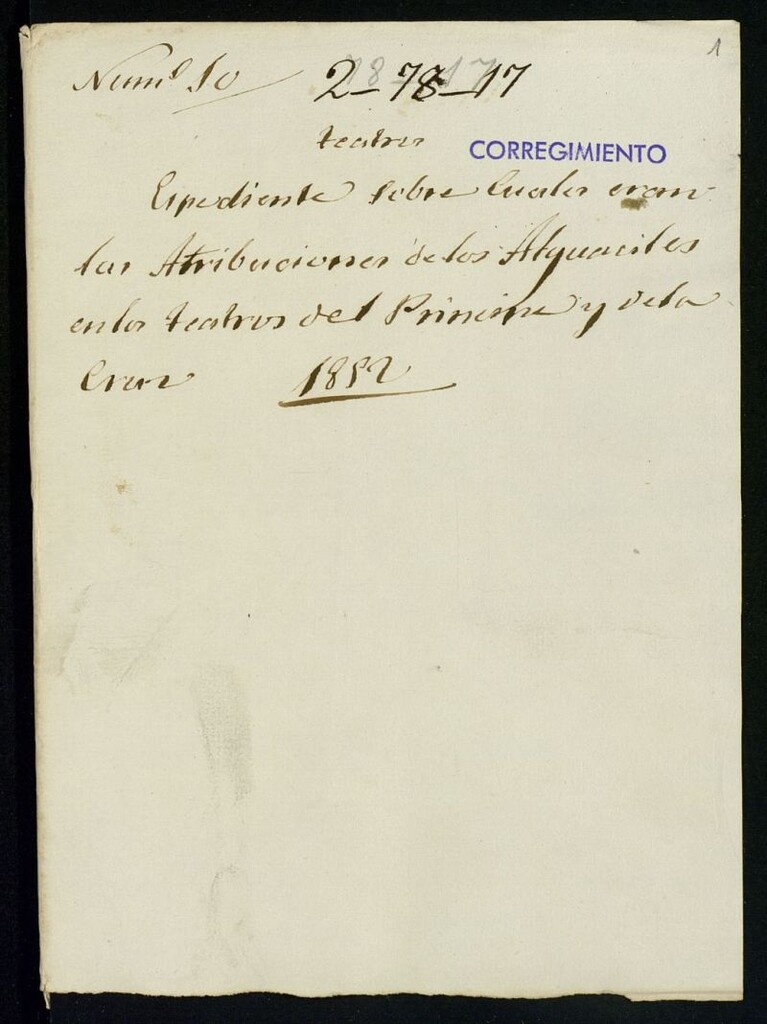 1
Numº 10 2-78-17
teatros
CORREGIMIENTO
Espediente sobre Cuales eran
las Atribuciones de los Alguaciles
en los teatros del Principe y dela
Cruz 1812